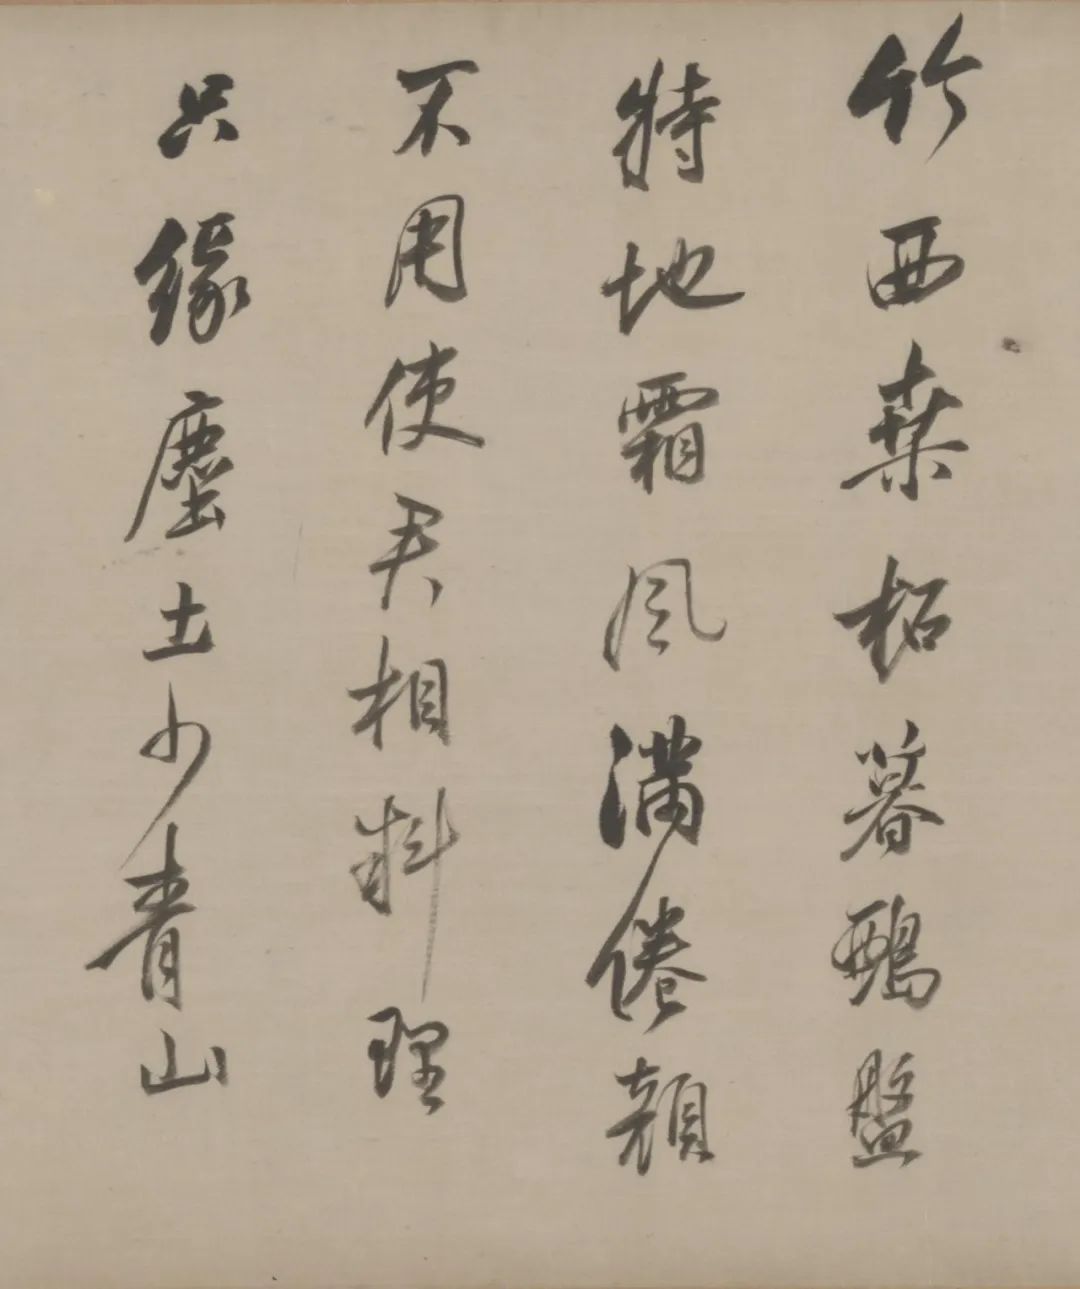 竹西桑柘暮鴉盤
特地霜風滿倦顏
不用使君相料理
只緣塵土少青山